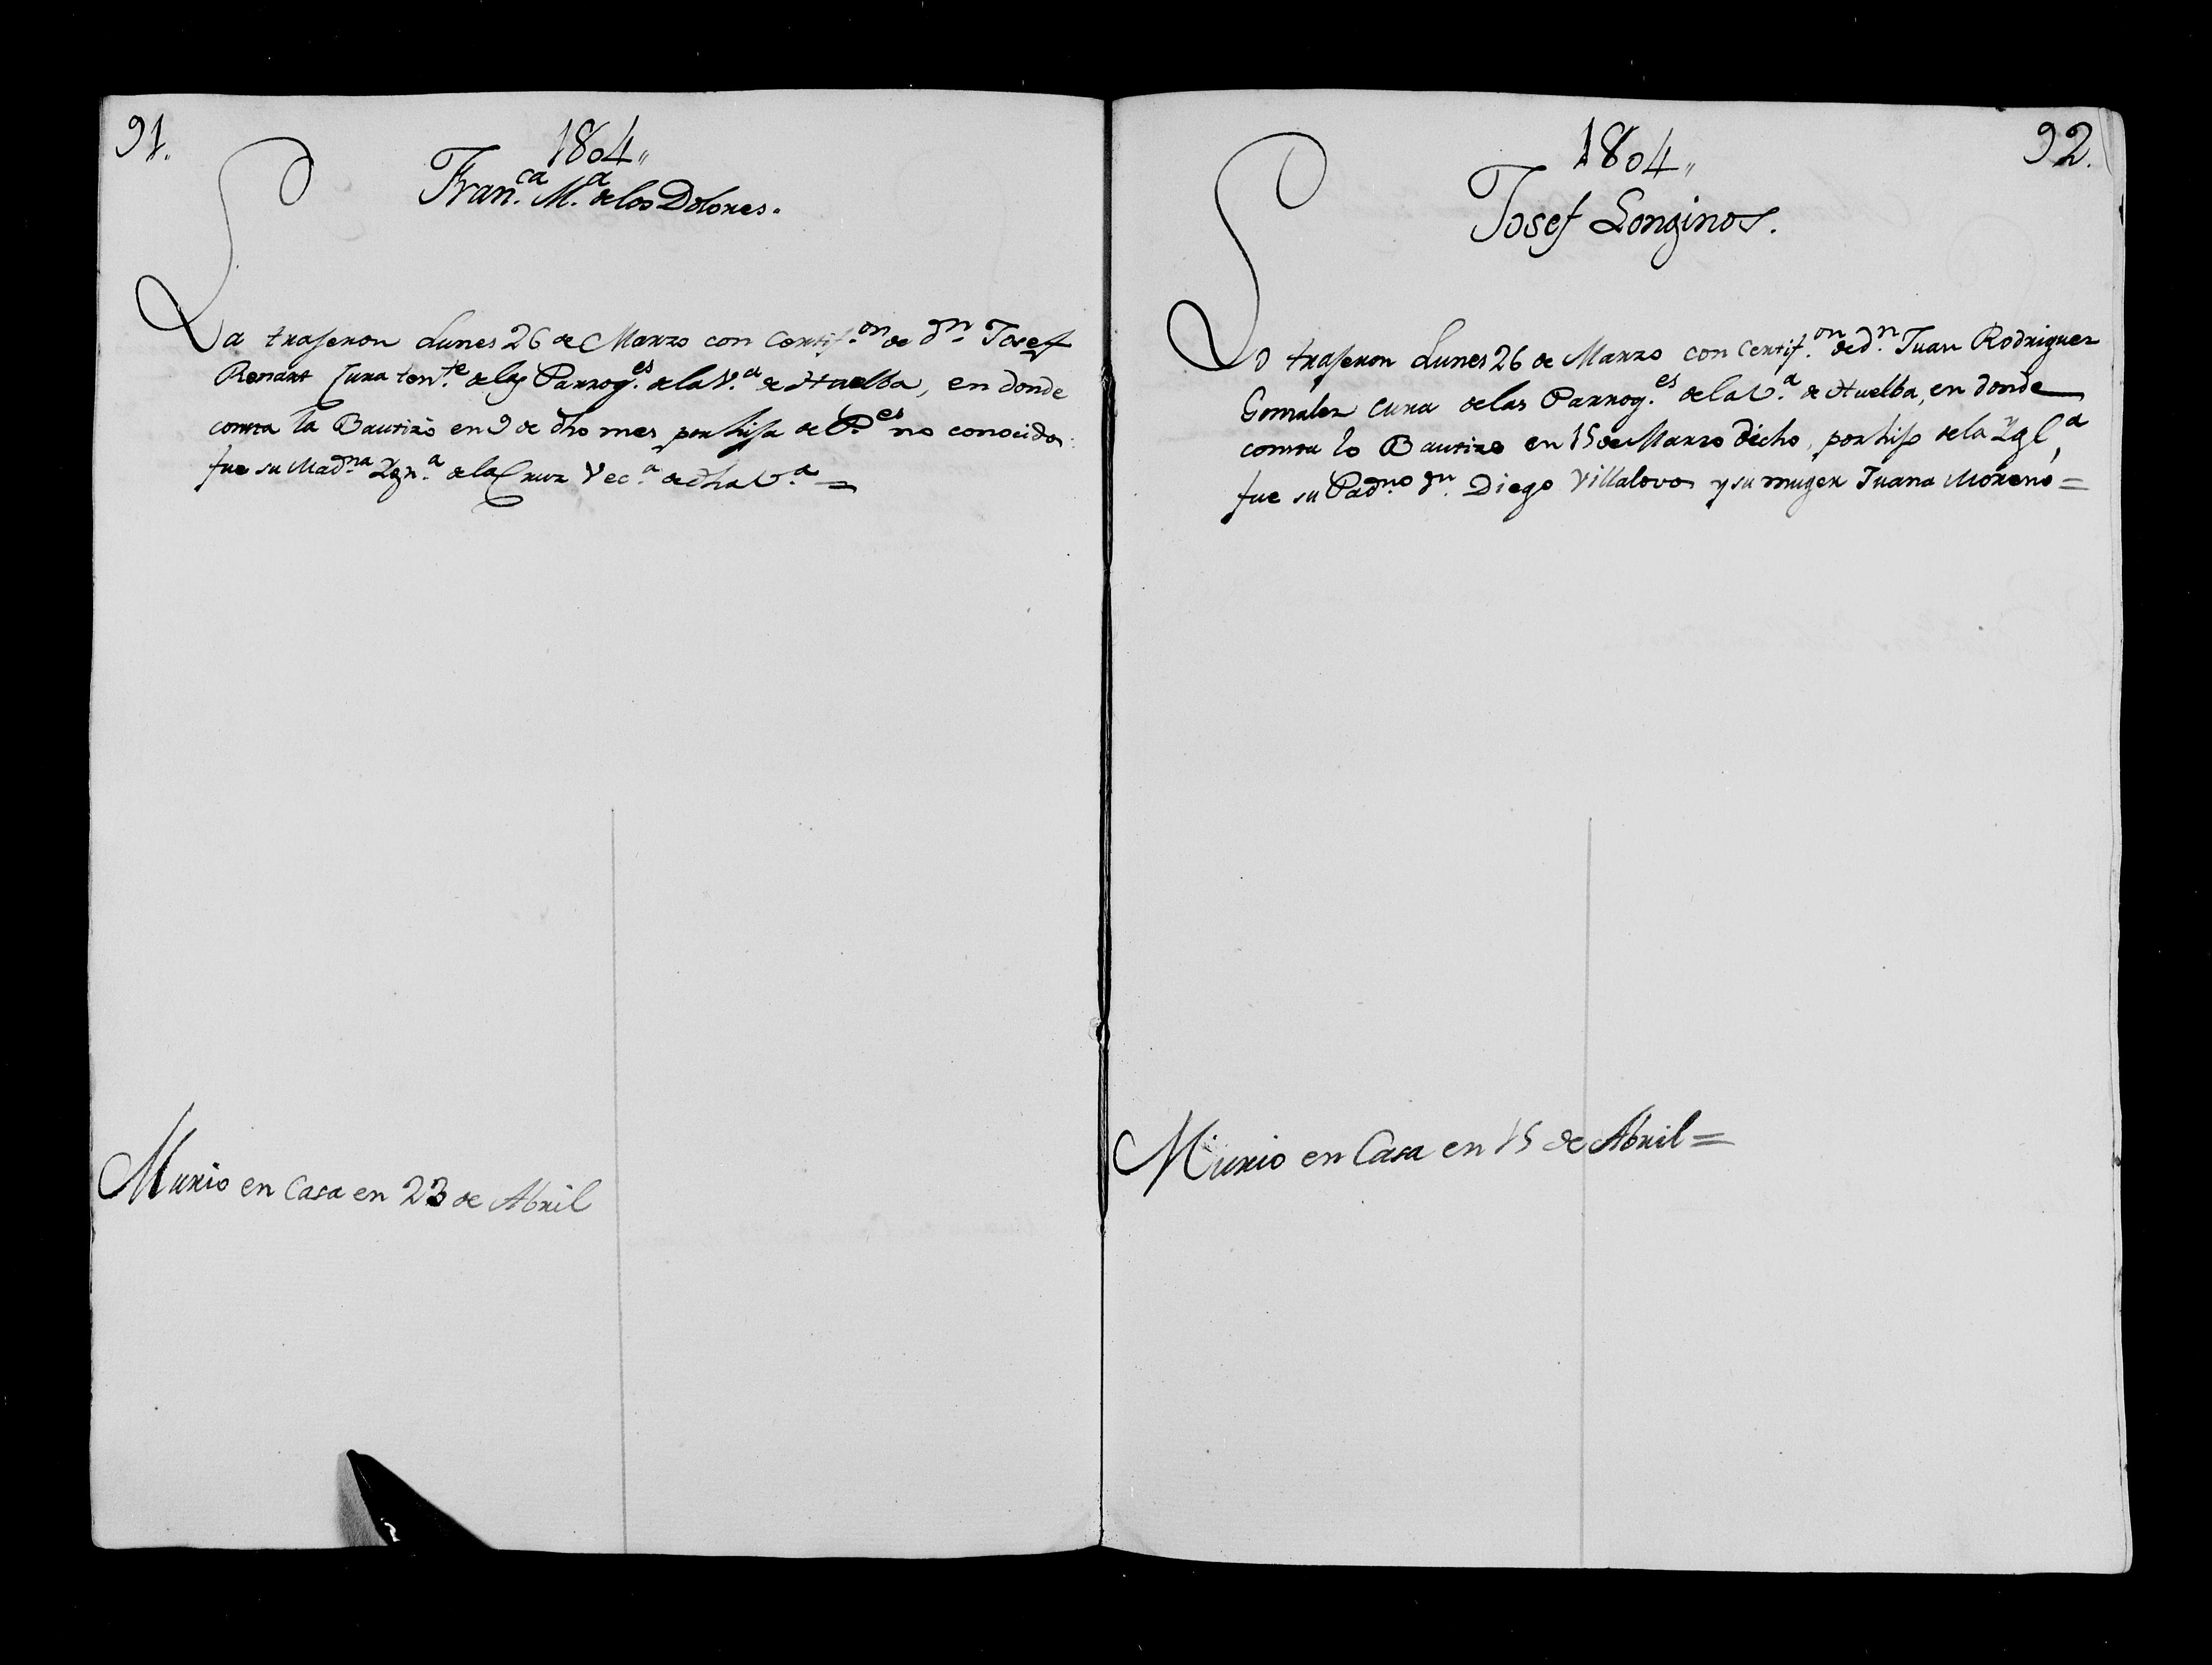 91.
1804,,
Fran.ca M.a de los Dolores.
La trajeron Lunes 26 de Marzo con Certif.on de dn Josef
Renart Cura ten.te de las Parroq.es de la V.a de Huelba, en donde
consta la Bautizo en 9 de dho mes por hija de P.es no conocidos:
fue su Mad.na Ygn.a de la Cruz Vec.a de dha V.a =
Murio en Casa en 23 de Abril
92.
1804,,
Josef Longinos.
Lo trajeron Lunes 26 de Marzo con Certif.on de dn. Juan Rodriguez
Gonzalez Cura de las Parroq.es de la V.a de Huelba, en donde
consta lo Bautizo en 15 de Marzo dicho, por hijo de la Ygl.a,
fue su Pad.no dn. Diego Villalovos y su muger Juana Moreno =
Murio en Casa en 15 de Abril =